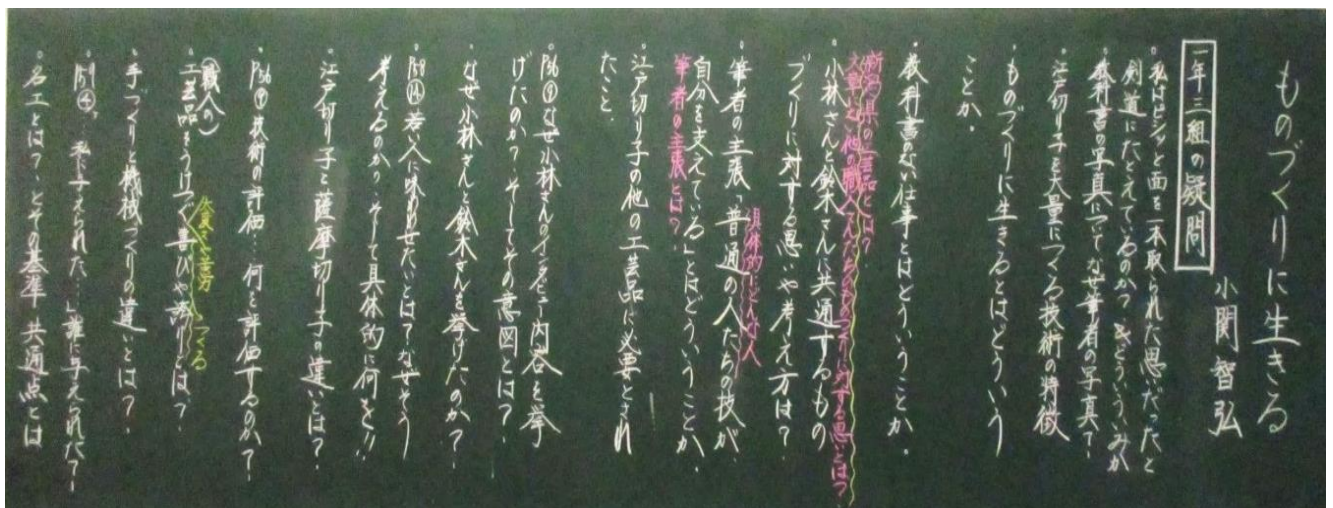 ものづくりに生きる
小関智弘
一年三組の疑問
・私はピシッと面を一本取られた思いだったと
剣道にたとえているのか？どういういみか
・教科書の写真についてなぜ筆者の写真？
・江戸切り子を大量につくる技術の特徴
・ものづくりに生きるとはどういう
ことか。
・教科書のない仕事とはどういうことか。
新潟県の工芸品とは？
文章にない他の職人たちのものづくりに対する思いとは？
・小林さんと鈴木さんに共通するもの
づくりに対する思いや考え方は？
・筆者の主張「普通の人たちの技が、
具体的にどんな人
自分を支えている」とはどういうことか。
筆者の主張とは？
・江戸切り子の他の工芸品に必要とされ
たこと。
・P56⑨なぜ小林さんのインタビュー内容を挙
げたのか？そしてその意図とは？
・なぜ小林さんと鈴木さんを挙げたのか？
・P58⑭若い人に味わわせたいとは？なぜそう
考えるのか？そして具体的に何を!!
・江戸切り子と薩摩切り子の違いとは？
・P56⑨技術の評価…何を評価するのか？
（職人の）
・工芸品をうけつぐ喜びや誇りとは？
失敗と苦労
つくる
・手づくりと機械づくりの違いとは？
・P59④「私に与えられた…」誰に与えられた？
・名工とは？とその基準 共通点とは